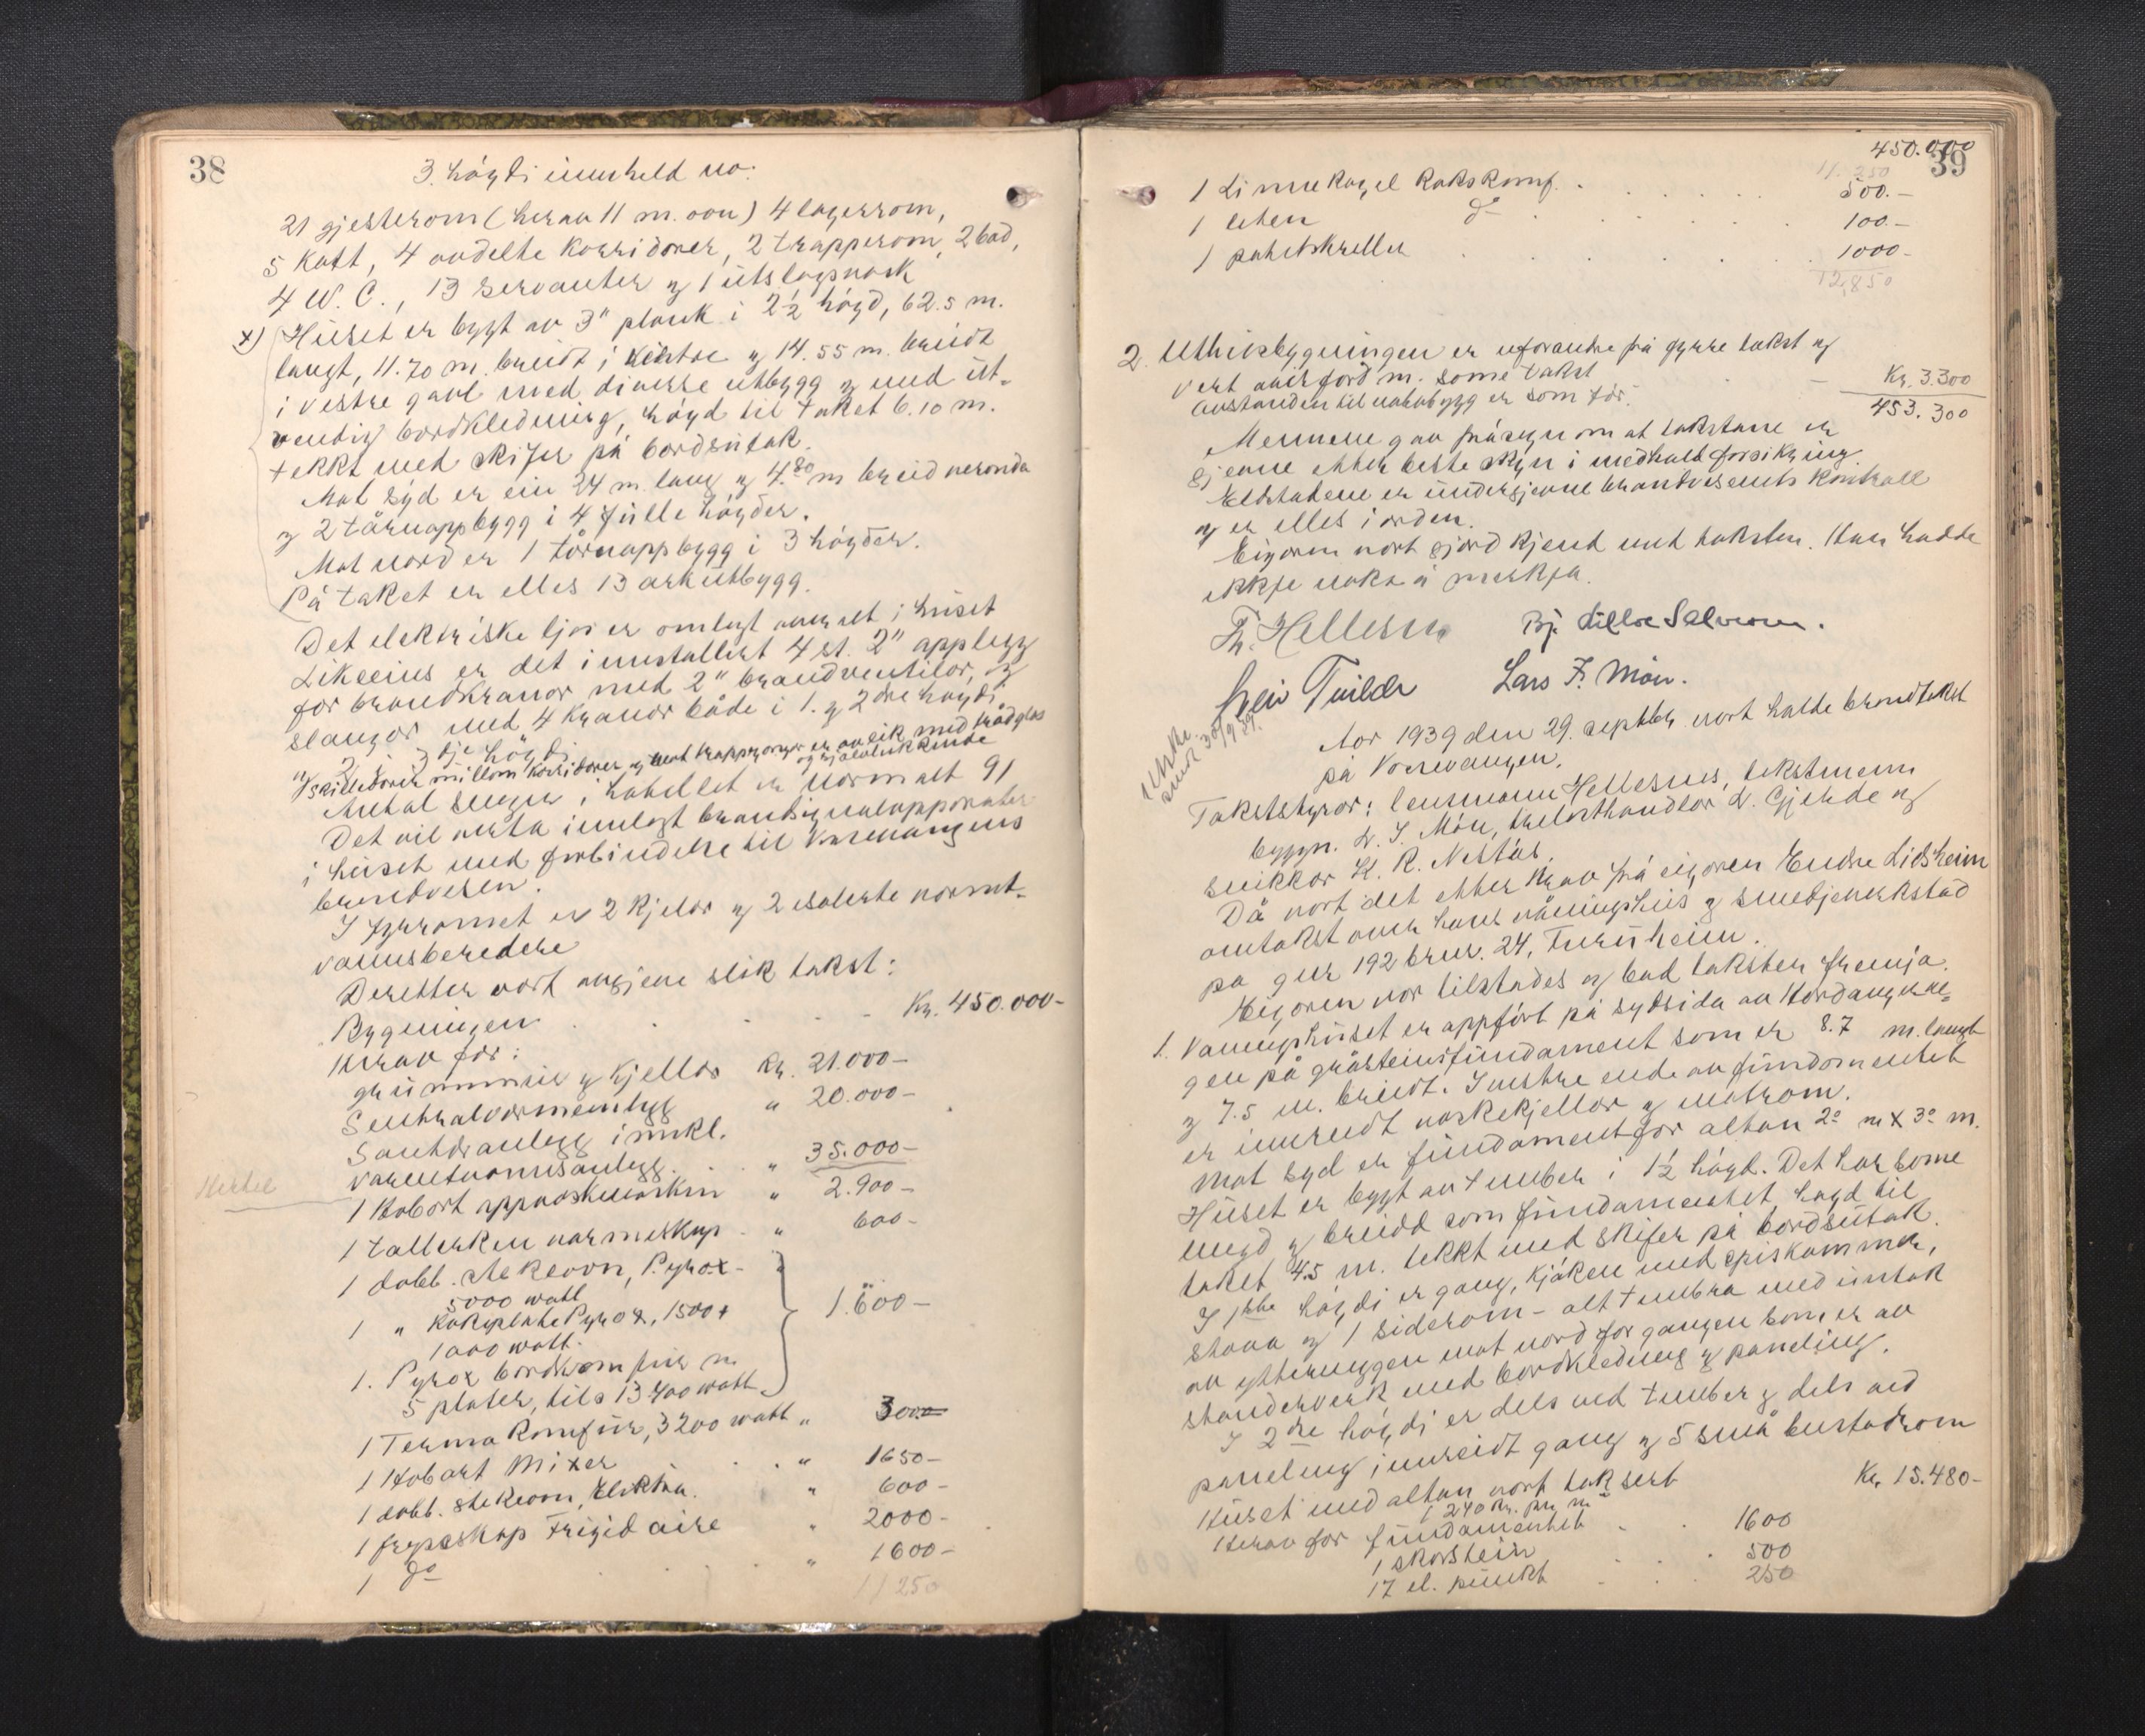 38
3. høgdi innheld no:
21 gjesterom (herav 11 m. ovn) 4 lagerrom,
5 kott, 4 avdelte korridorer, 2 trapperom, 2 bad,
4 W. C., 13 servanter og 1 utslagsvask
x) Huset er bygt av 3" plank i 2½ høgd, 62.5 m.
langt, 11.70 m. breidt i østre og 14.55 m. breidt
i vestre gavl med diverse utbygg og med ut-
vendig bordkledning, høgd til taket 6.10 m.
tekkt med skifer på bordsutak.
Mot syd er ein 24 m. lang og 4.80 m breid veranda
og 2 tårnoppbygg i 4 fulle høgder.
Mot nord er 1 tårnoppbygg i 3 høgder.
På taket er elles 13 arkutbygg.
Det elektriske ljos er omlagt overalt i huset
Likeeins er det innstallert 4 st. 2" opplegg
for brandkranor med 2" brandventilor, og
slangor med 4 kranor både i 1. og 2dre høgdi
og 3dje høgdi.
Skilledörer millom korridorer og mot trappeganger er av eik med trådglas
og sjølvlukkende
Antal senger i hotellet er normalt 91
Det vil verta innlagt brandsignalapparater
i huset med forbindelse til Vossevangens
brandvesen.
I fyrromet er 2 kjelar og 2 isolerte varmt-
vannsberedere
Deretter vart avgjeve slik takst:
Bygningen . . . Kr. 450.000-
Herav for:
grunnmur og kjellar Kr. 21.000-
Sentralvarmeanlegg " 20.000-
Sanitæranlegg innkl.
varmtvannsanlegg . . " 35.000-
1 Hobart oppvaskmaskin " 2.900-
1 tallerken varmeskap . " 600-
1 dobb. stekeovn, Pyrox-
5000 watt
1 " kokeplate Pyrox, 1500+
1000 watt.
1.600-
1. Pyrox bordkomfur m.
5 plater, tils 13400 watt
1 Terma Komfur, 3200 watt " 3000
1 Hobart Mixer . . " 1650-
1 dobb. stekeovn, Elektra. " 600-
1 fryseskap Frigidaire " 2000-
1 do . . " 1600-
11250
450.000
39
11.250
1 Linnekogel kokskomf. . . . 500.-
1 liten do . . . 100.-
1 potetskreller . . . 1000-
12,850
2. Uthusbygningen er uforandra frå fyrre takst og
vert anførd m. some takst - Kr. 3.300
avstanden til nabobygg er som før. 453.300
Mennene gav fråsegn om at takstane er
gjevne etter beste skjøn i medhald forsikring
Eldstadene er undergjevne brandvesenets kontroll
og er elles i orden.
Eigaren vart gjord kjend med taksten. Han hadde
ikkje noko å merkja.
Th. Hellesnes Bj. Lilloe Salvesen.
Lars F. Møn.
Utskr.
sendt 30/9 39.
Aar 1939 den 29. septbr. vart halde brandtakst
på Vossevangen.
Takststyrar: lensmann Hellesnes, takstmenn
byggm. L. F. Møn, trelasthandlar L. Gjerde og
snikkar K. R. Nestås.
Då vart det etter krav frå eigaren Endre Lidsheim
omtakst over hans våningshus og smedjeverkstad
på gnr 192 brnr. 24, Furuheim.
Eigaren var tilstades og bad taksten fremja.
1. Våningshuset er oppført på sydsida av Hardangerve-
gen på gråsteinsfundament som er 8.7 m. langt
og 7.5 m. breidt. I vestre ende av fundamentet
er innreidt vaskekjellar og matrom.
Mot syd er fundament for altan 2.0 m x 3.0 m.
Huset er bygt av tømber i 1½ høgd. Det har some
lengd og breidd som fundamentet, høgd til
taket 4.5 m. tekkt med skifer på bordsutak.
I 1ste høgdi er gang, kjøken med spiskammer,
stova og 1 siderom - alt tømbra med untak
av ytterveggen mot nord for gangen som er av
standerverk med bordkledning og paneling.
I 2dre høgdi er dels ved tømber og dels ved
paneling innreidt gang og 5 små bustadrom
Huset med altan vart taksert Kr. 15.480-
Herav for fundamentet . . 1600
1 skorstein . 500
17 el. punkt . . 250